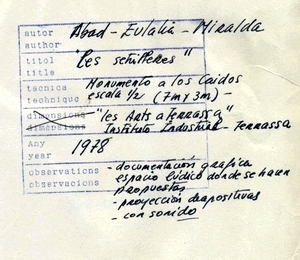 autor
author
Abad - Eulalia - Miralda
titol
title
"les schifferes"
tecnica
technique
Monumento a los Caidos
escala 1/2 (7m y 3m) -
dimensions
dimensions
"les Arts a terrassa"
Instituto Industrial - Terrassa
Any
year
1978
observations
observacions
- documentación grafica
espacio lúdico donde se hacen
propuestas
- proyección diapositivas
- con sonido